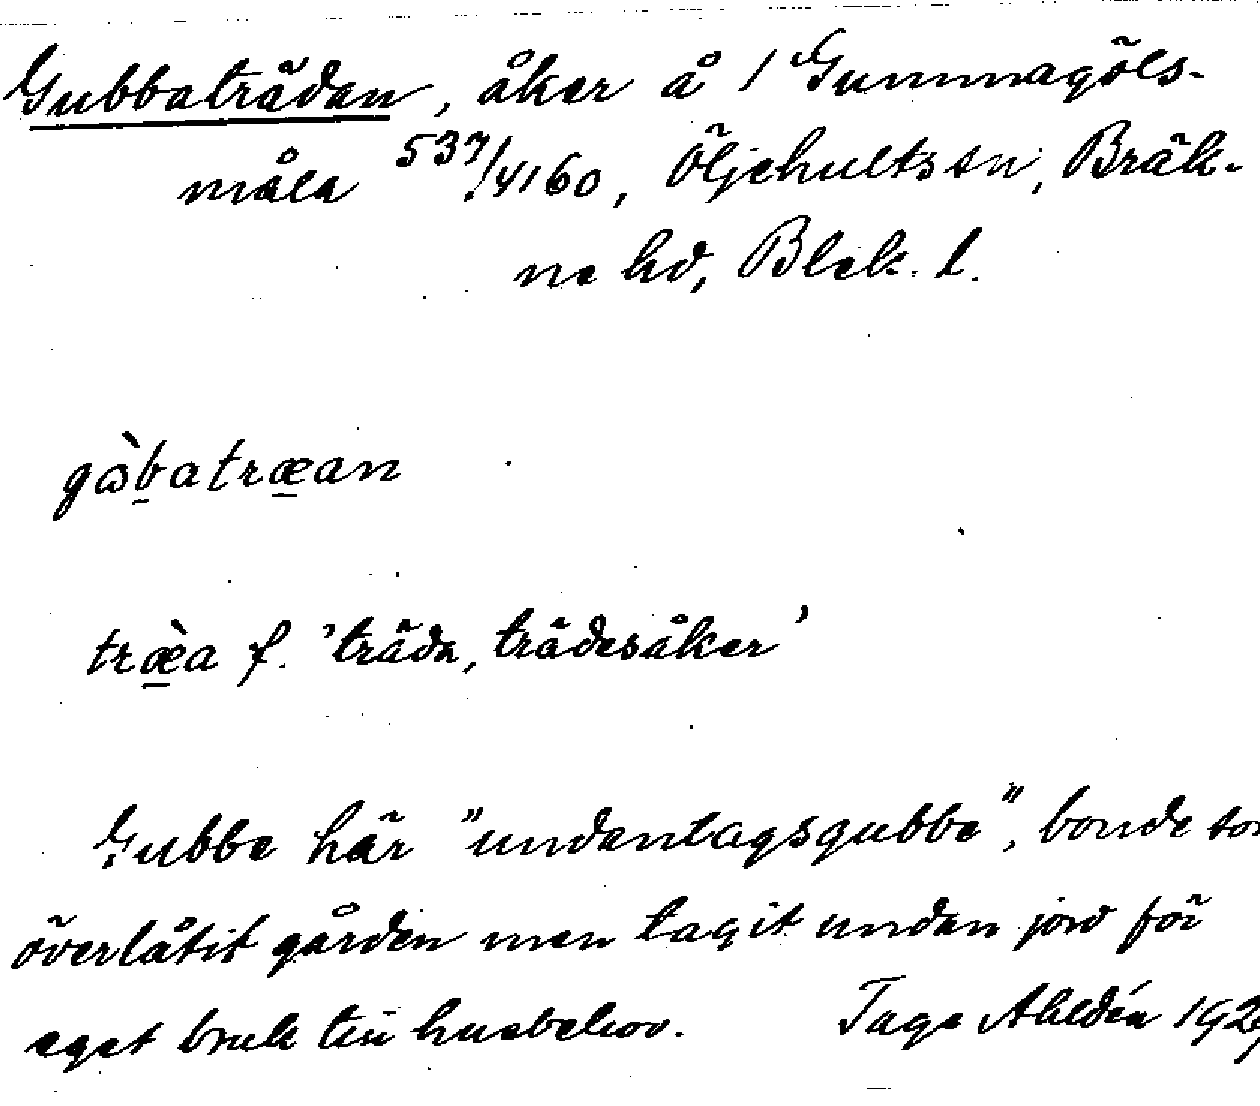 Gubbaträdan, åker å 1 Gummagöls-
måla 537/4160, Öljehults sn, Bräk-
ne hd, Blek. l.
gɷ̀b̲atræ̲an
træ̲̀a f. 'träda, trädesåker'
Gubbe här "undantagsgubbe", bonde so
överlåtit gården men tagit undan jord för
eget bruk till husbehov. Tage Ahldén 1929